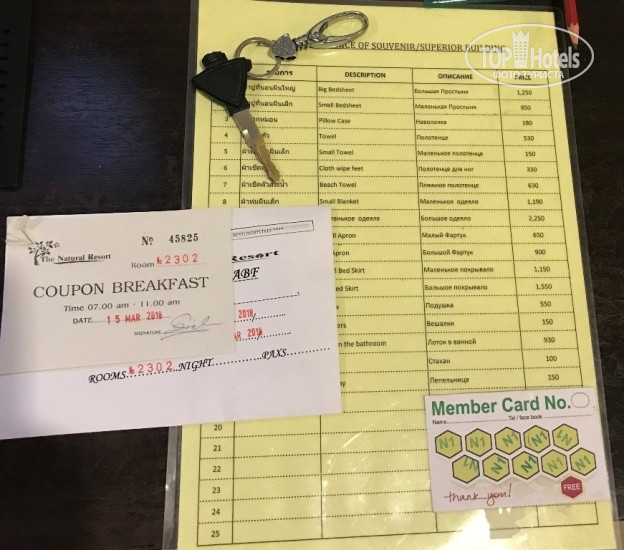 OF SOUVENIR/SUPERIOR BUILDING
TOP Hotels
DESCRIPTION ОПИСАНИЕ PRICE
Big Bedsheet Большая Простыня 1,250
Small Bedsheet Маленькая Простыня 850
Pillow Case Наволочка 180
4 Towel Полотенце 530
5 Small Towel Маленькое полотенце 150
6 Cloth wipe feet Полотенце для ног 330
7 Beach Towel Пляжное полотенце 630
8 Small Blanket Маленькое одеяло 1,190
одеяло Большое одеяло 2,250
Apron Малый Фартук 650
Apron Большой Фартук 900
Bed Skirt Маленькое покрывало 1,150
Большое покрывало 1,550
Подушка 550
Вешалки 150
the bathroom Лоток в ванной 930
Стакан 100
Пепельница 150
20
21
22
23
24
25
The Natural Resort
№ 45825
ROOM № 2302
COUPON BREAKFAST
Time 07.00 am - 11.00 am
DATE 15 MAR 2018
SIGNATURE
ABF
2018
MAR 2018
ROOMS № 2302 NIGHT PAXS
Member Card No.
Name Tel / face book
N1 N1 N1 N1 N1
N1 N1 N1 N1 N1
FREE
thank you!